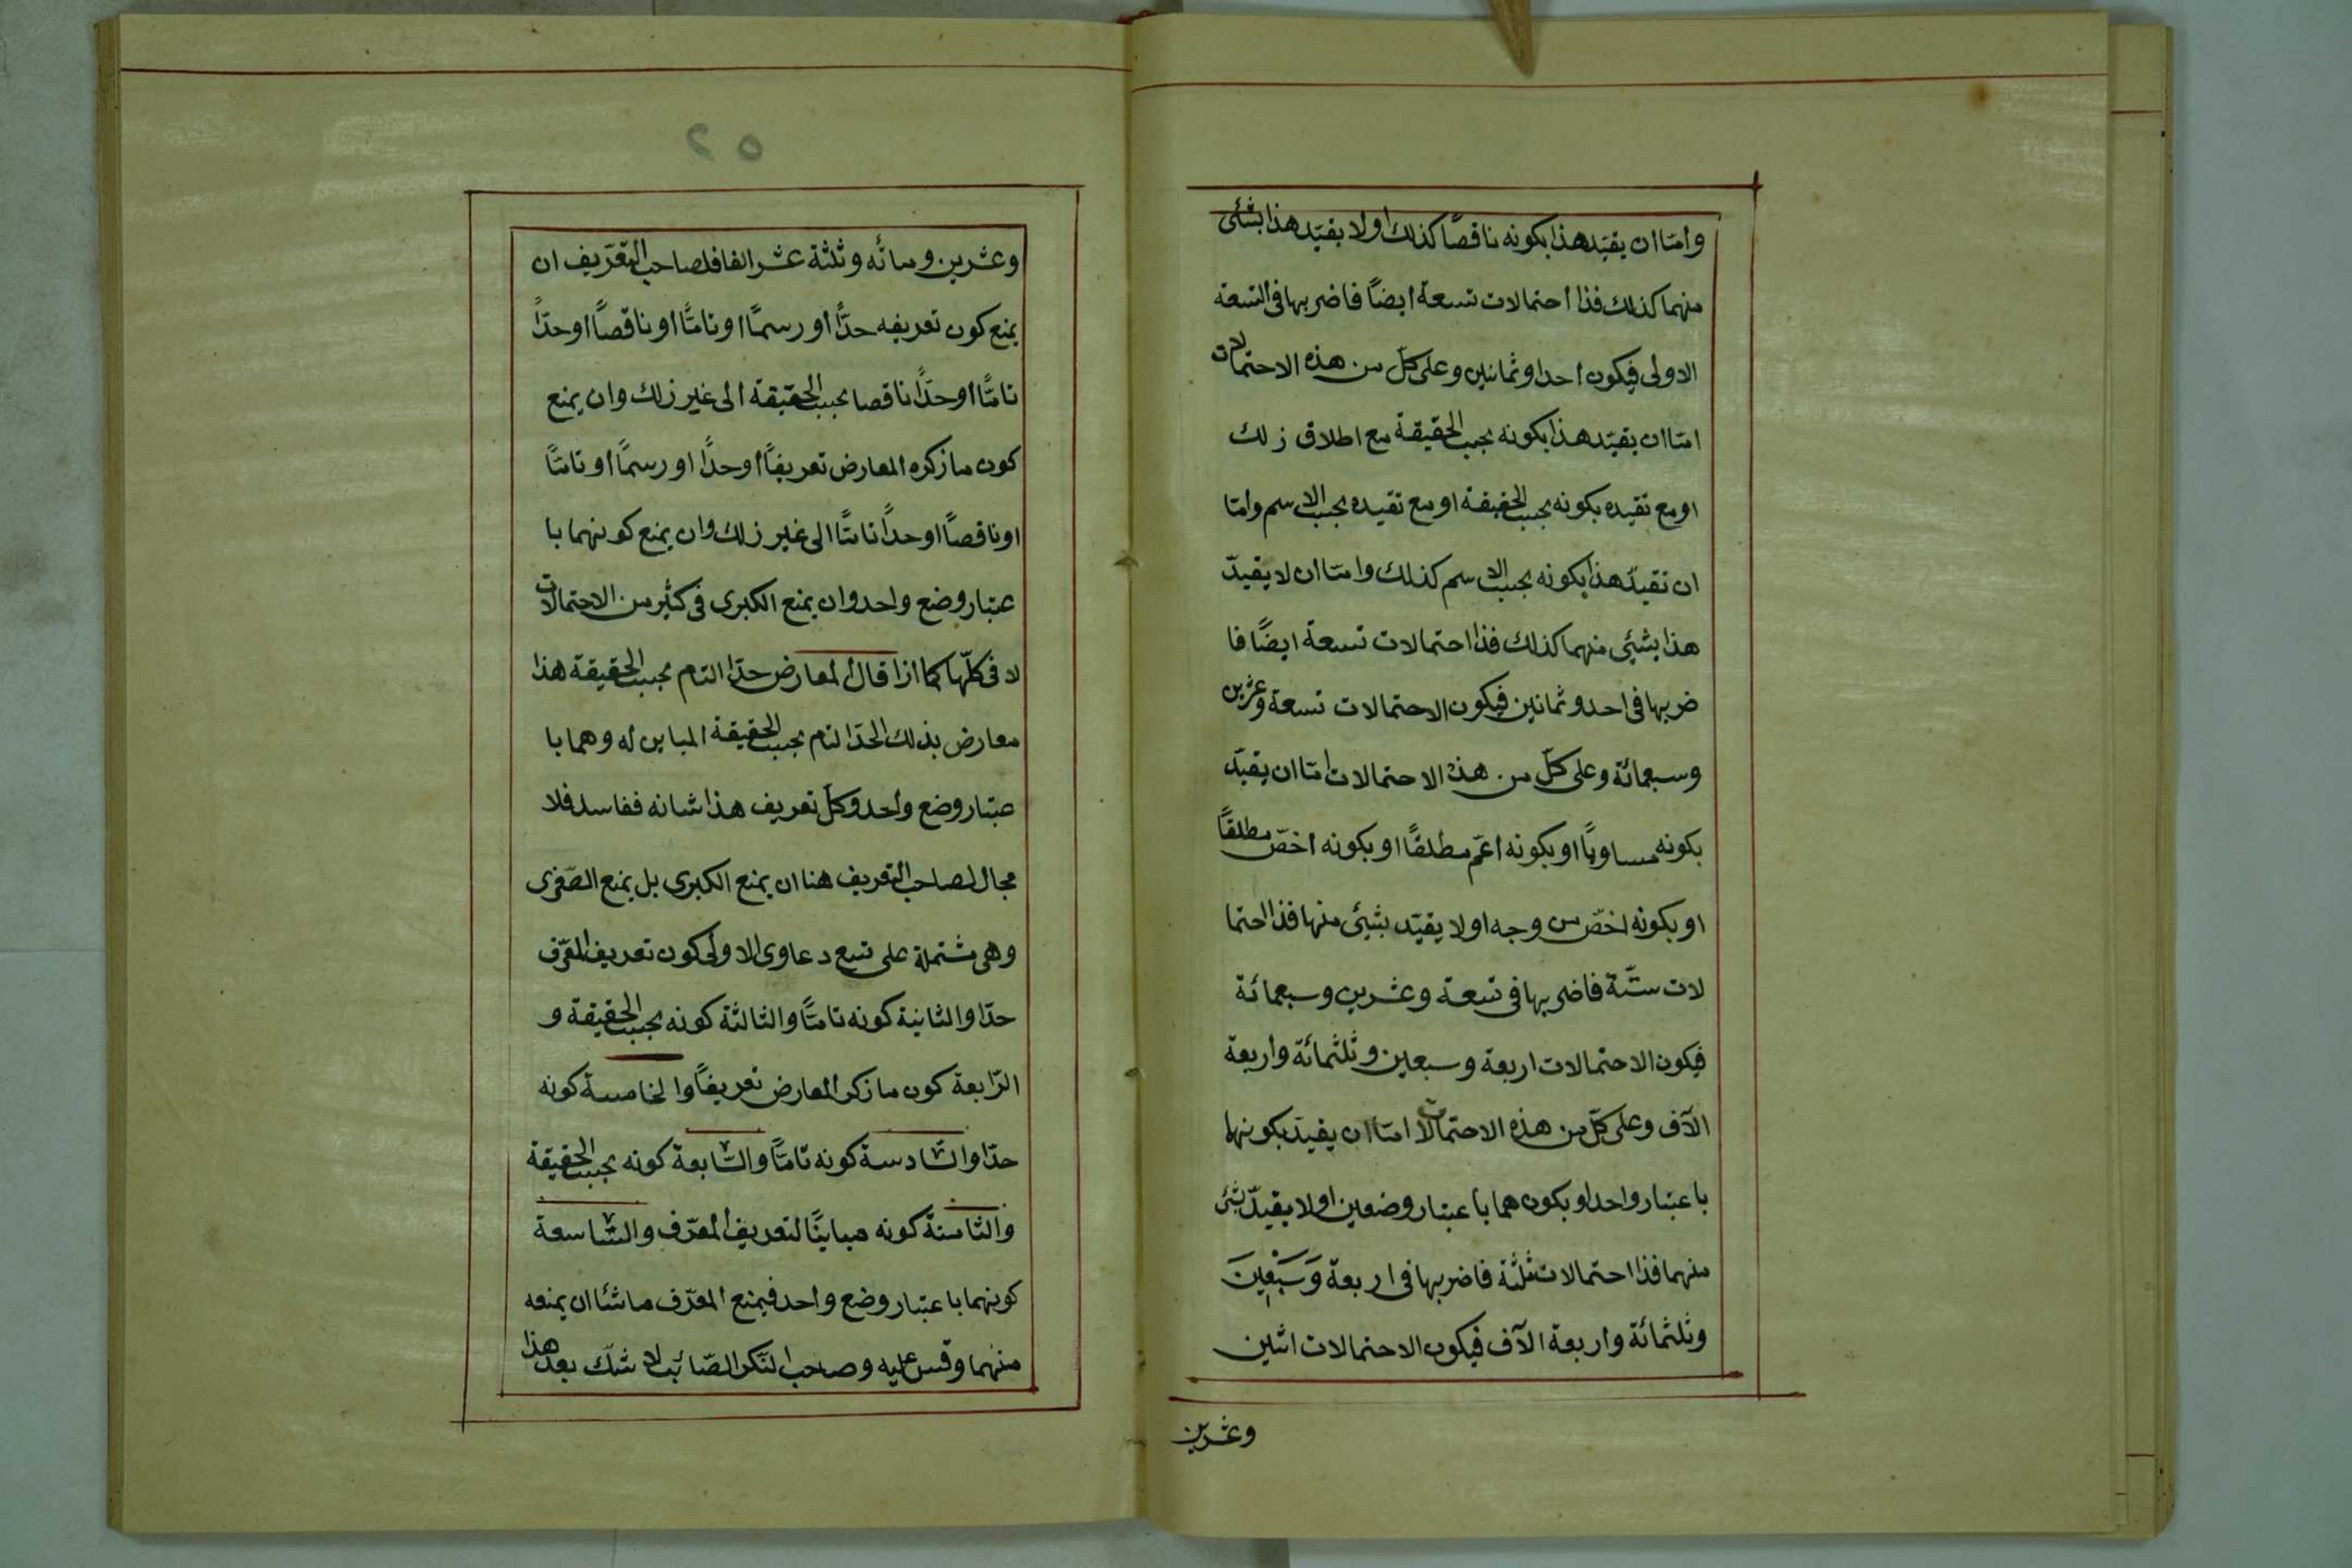 وامّا ان يقيّد هذا بكونه ناقصًا كذلك او لا يقيّد هذا بشئى
منهما كذلك فذا احتمالات تسعة ايضًا فاضربها فى التسعة
الاولى فيكون احدا وثمانين وعلى كلّ من هذه الاحتمالات
امّا ان يقيّد هذا بكونه بحسب الحقيقة مع اطلاق زلك
او مع تقيده بكونه بحسب الحقيقة او مع تقيده بحسب الاسم وامّا
ان تقيدّ هذا بكونه بحسب الاسم كذلك وامّا ان لا يقيدّ
هذا بشئى منهما كذلك فذا احتمالات تسعة ايضًا فا
ضربها فى احد وثمانين فيكون الاحتمالات تسعة وعشرين
وسبعمائة وعلى كلّ من هذه الاحتمالات امّا ان يقيّد
بكونه مساويًا او بكونه اعمّ مطلقًا او بكونه اخصّ مطلقًا
او بكونه اخصّ من وجه او لا يقيّد بشئى منها فذا احتما
لات ستّة فاضربها فى تسعة وعشرين وسبعمائة
فيكون الاحتمالات اربعة وسبعين وثلثمائة واربعة
الآف وعلى كلّ من هذه الاحتمالات امّا ان يقيدّ بكونها
باعتبار واحد او بكون هما باعتبار وضعين او لا يقيدّ بشئى
منهما فذا احتمالات ثلثة فاضربها فى اربعة وَسَبْعِينَ
وثلثمائة واربعة الآف فيكون الاحتمالات اثنين
وعشرين
٥٢
وعشرين ومائه وثلثة عشر الفا فلصاحب التّعرّيف ان
يمنع كون تعريفه حدًّا او رسمًا او تامًّا او ناقصًا او حدًّا
تامًّا او حدًّا ناقصا بحسب الحقيقة الى غير زلك وان يمنع
كون ما زكره المعارض تعريفًا او حدًّا او رسمًا او تامًّا
او ناقصًا او حدًّا تامًّا الى غير زلك وان يمنع كونهما با
عتبار وضع واحد وان يمنع الكبرى فى كثير من الاحتمالات
لا فى كلّها كما ازا قال المعارض حدّا التام بحسب الحقيقة هذا
معارض بذلك الحدّ التام بحسب الحقيقة المباين له وهما با
عتبار وضع واحد وكل تعريف هذا شانه ففاسد فلا
مجال لصاحب التّعريف هنا ان يمنع الكبرى بل يمنع الصّغرى
وهى مشتملة على تسع دعاوى الاولى كون تعريف المعّرف
حدّا والثانية كونه تامًّا والثالثة كونه بحسب الحقيقة و
الرّابعة كون ما زكر المعارض تعريفًا والخامسة كونه
حدّا والسّادسة كونه تامًّا والسّابعة كونه بحسب الحقيقة
والثّامنة كونه مباينًا لتعريف المعرّف والتّاسعة
كونهما باعتبار وضع واحد فيمنع المعرّف ما شئا ان يمنعه
منهما وقس عليه وصاحب الفكر الصّائب لا شكّ بعد هذا